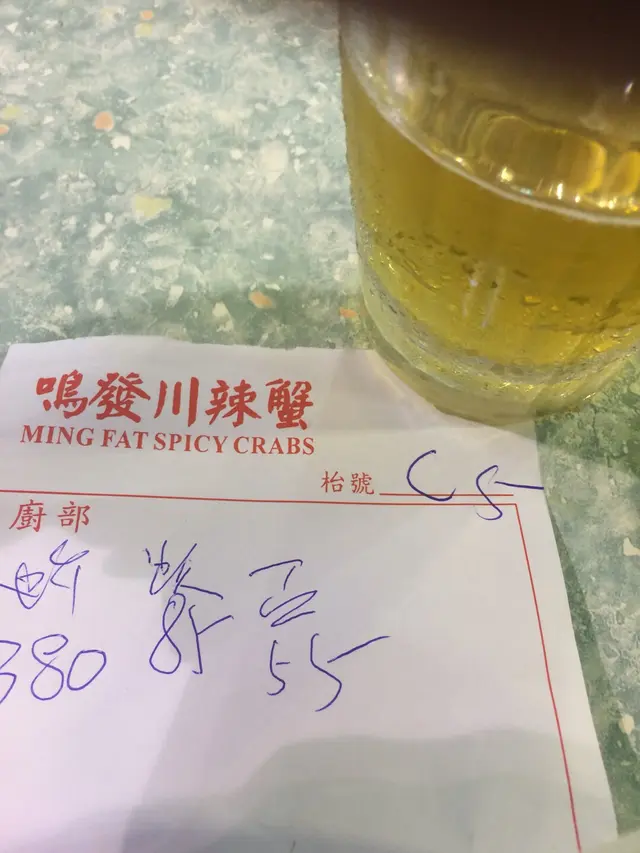 鳴發川辣蟹
MING FAT SPICY CRABS
枱號 C5
廚部
380 85 55